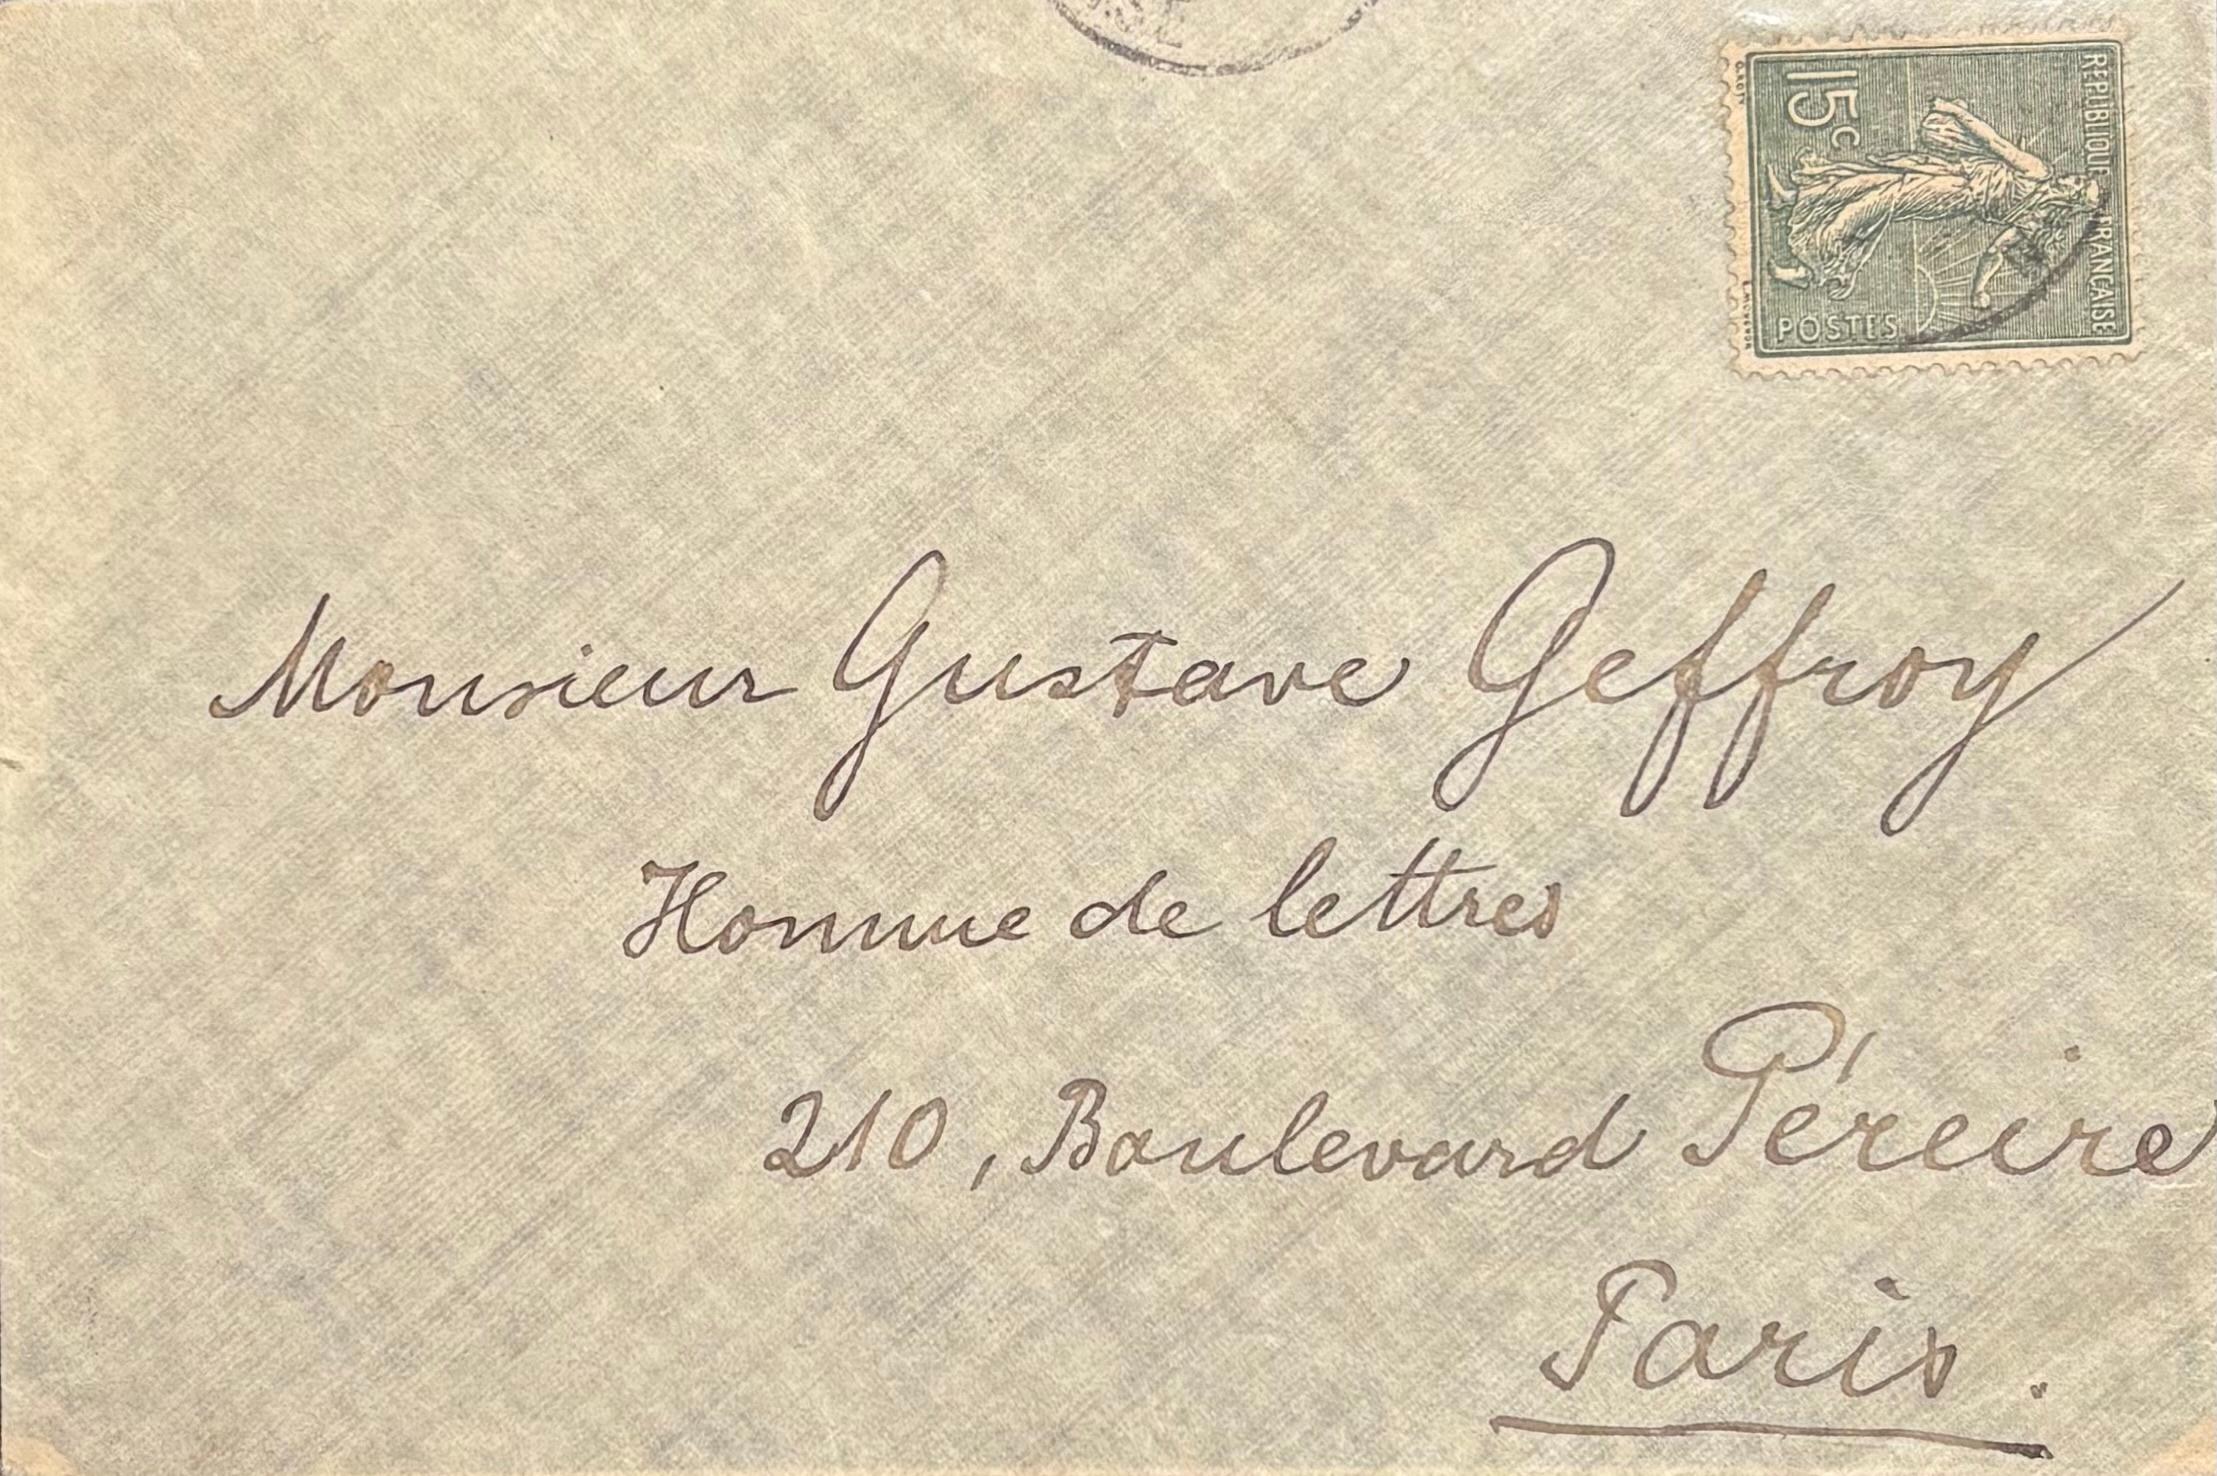 15c
REPUBLIQUE FRANCAISE
POSTES
Monsieur Gustave Geffroy
Homme de lettres
210, Boulevard Péreire
Paris.